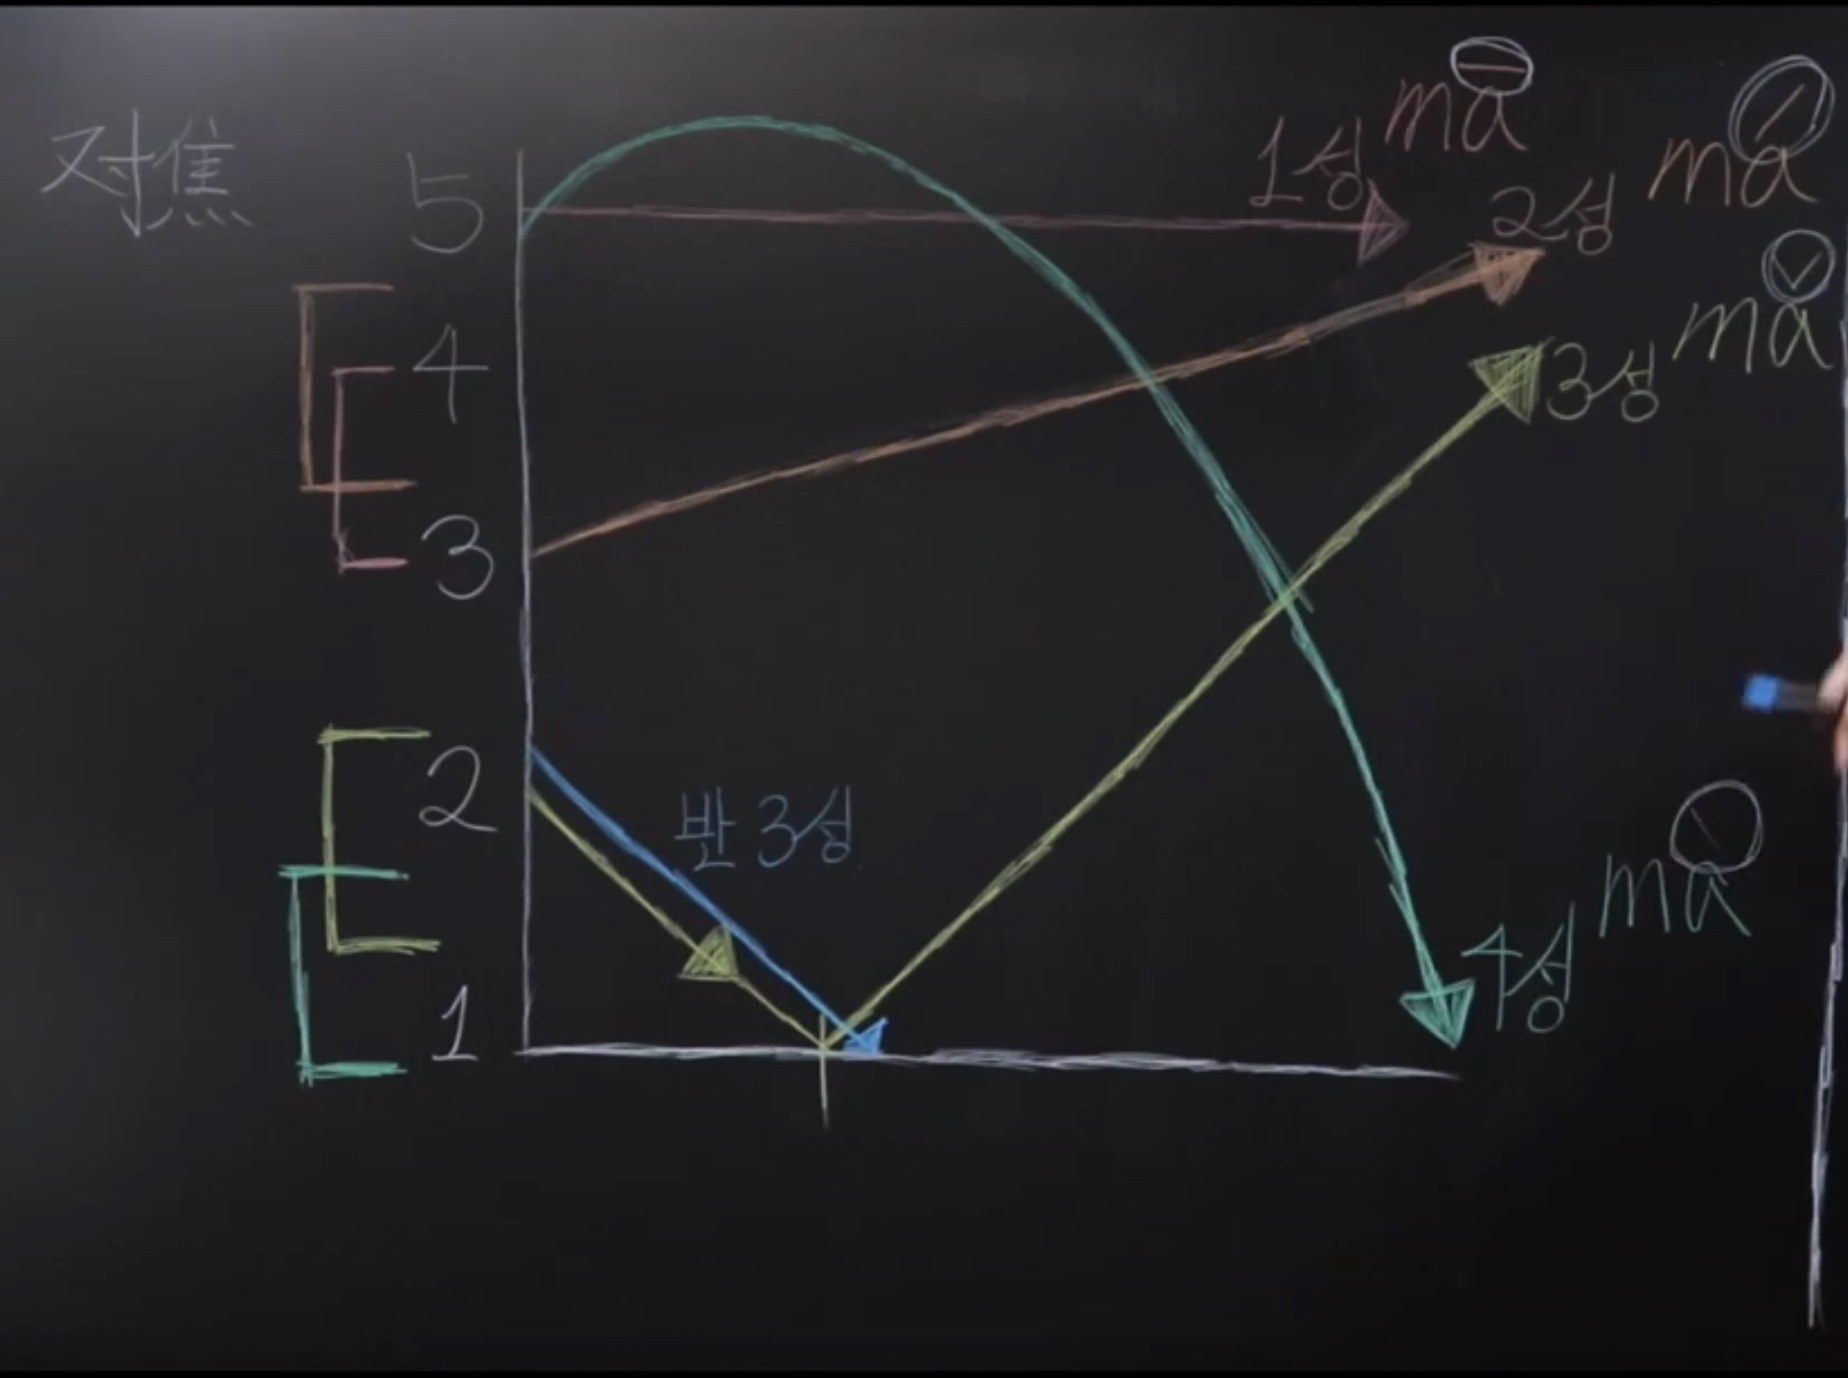 对焦
5
4
3
2
1
1성 mā
2성 má
3성 mǎ
반3성
4성 mà